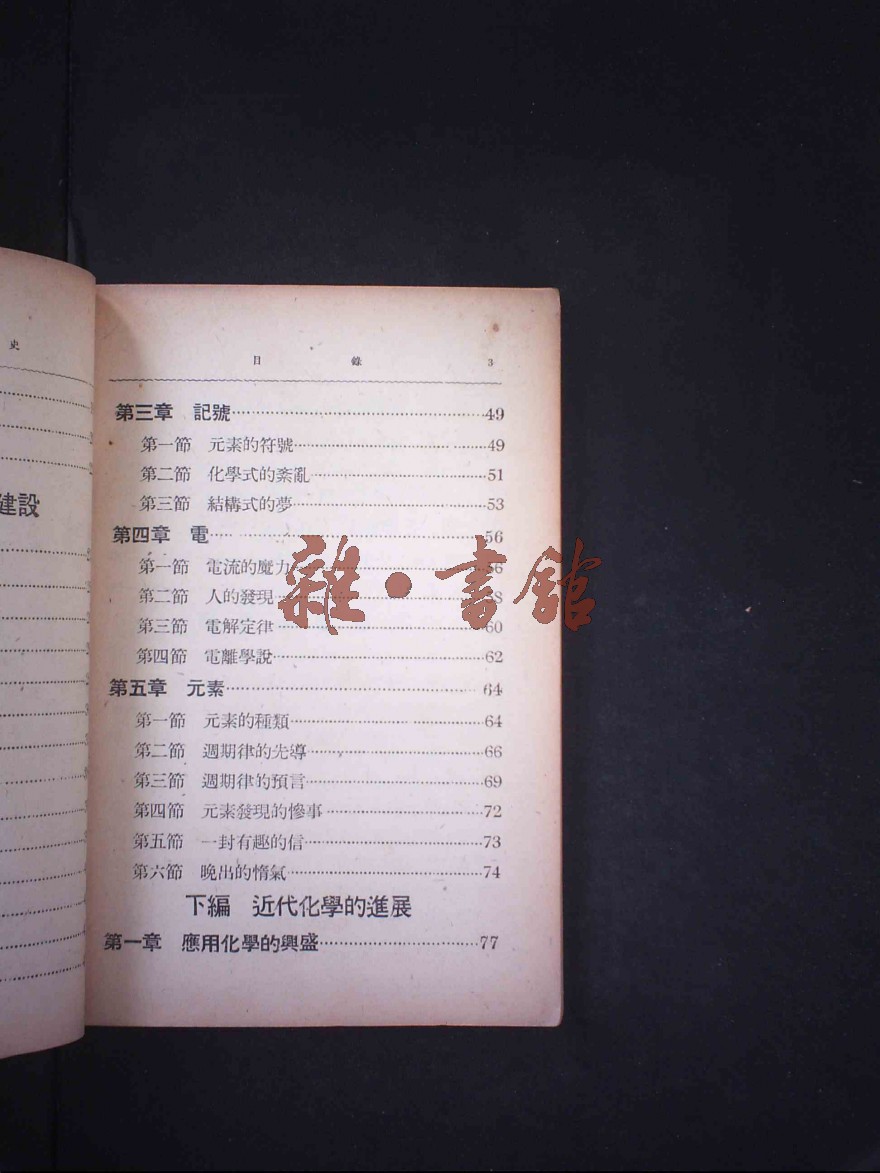 史
建設
目錄 3
第三章 記號 49
第一節 元素的符號 49
第二節 化學式的紊亂 51
第三節 結構式的夢 53
第四章 電 56
第一節 電流的魔力 56
第二節 人的發現 58
第三節 電解定律 60
第四節 電離學說 62
第五章 元素 64
第一節 元素的種類 64
第二節 週期律的先導 66
第三節 週期律的預言 69
第四節 元素發現的慘事 72
第五節 一封有趣的信 73
第六節 晚出的惰氣 74
下編 近代化學的進展
第一章 應用化學的興盛 77
雜·書館